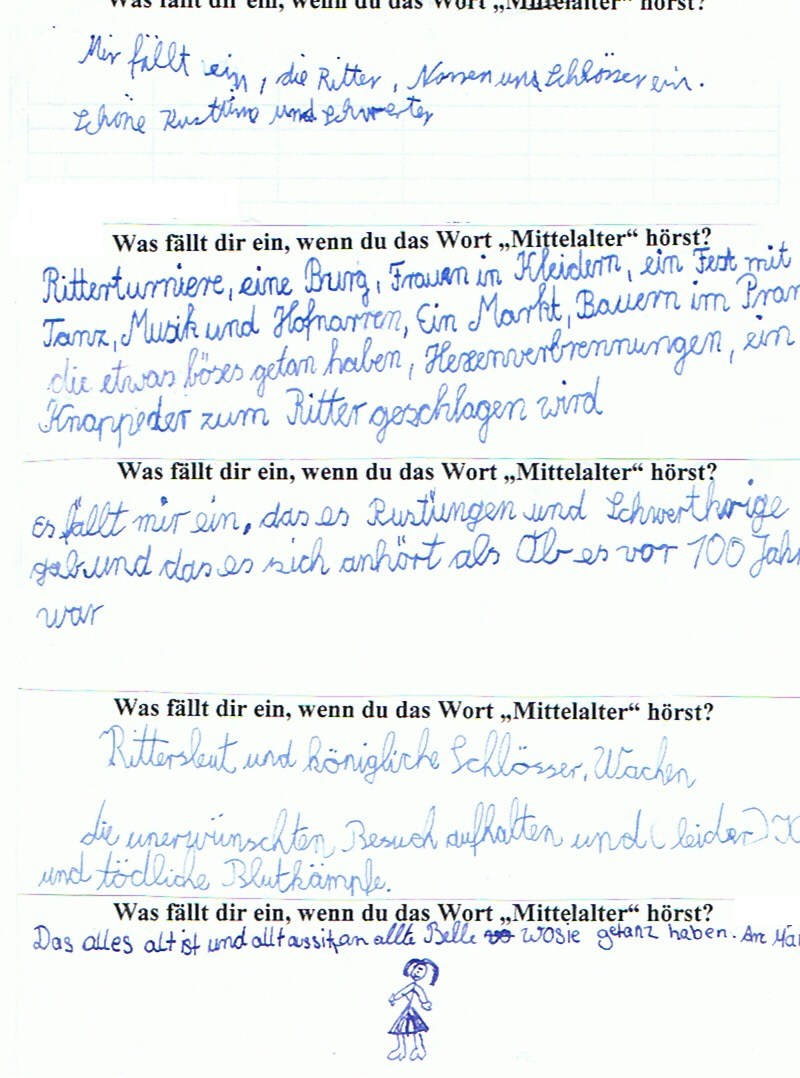 Was fällt dir ein, wenn du das Wort „Mittelalter“ hörst?
Mir fällt ein, die Ritter, und Schlösser ein.
Schöne und Schwerter
Was fällt dir ein, wenn du das Wort „Mittelalter“ hörst?
Ritterturniere, eine Burg, Frauen in Kleidern, ein Fest mit
Tanz, Musik und Hofnarren, Ein Markt, Bauern im Pran
die etwas böses getan haben, Hexenverbrennungen, ein
Knappe der zum Ritter geschlagen wird
Was fällt dir ein, wenn du das Wort „Mittelalter“ hörst?
Es fällt mir ein, das es Rustüngen und
gab und das es sich anhört als Ob es vor 100 Jahr
war
Was fällt dir ein, wenn du das Wort „Mittelalter“ hörst?
Rittersleut und königliche Schlösser, Wachen
die unerwünschten Besuch aufhalten und (leider) K
und tödliche Blutkämpfe.
Was fällt dir ein, wenn du das Wort „Mittelalter“ hörst?
Das alles alt ist und allte Belle wo sie getanz haben. An